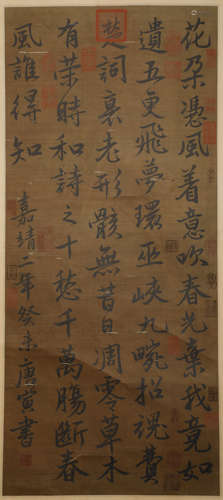 花朶憑風着意吹春光棄我竟如
遺五更飛夢環巫峽九畹招魂費
楚詞衰老形骸無昔日凋零草木
有榮時和詩之十愁千萬腸斷春
風誰得知 嘉靖二年癸未唐寅書